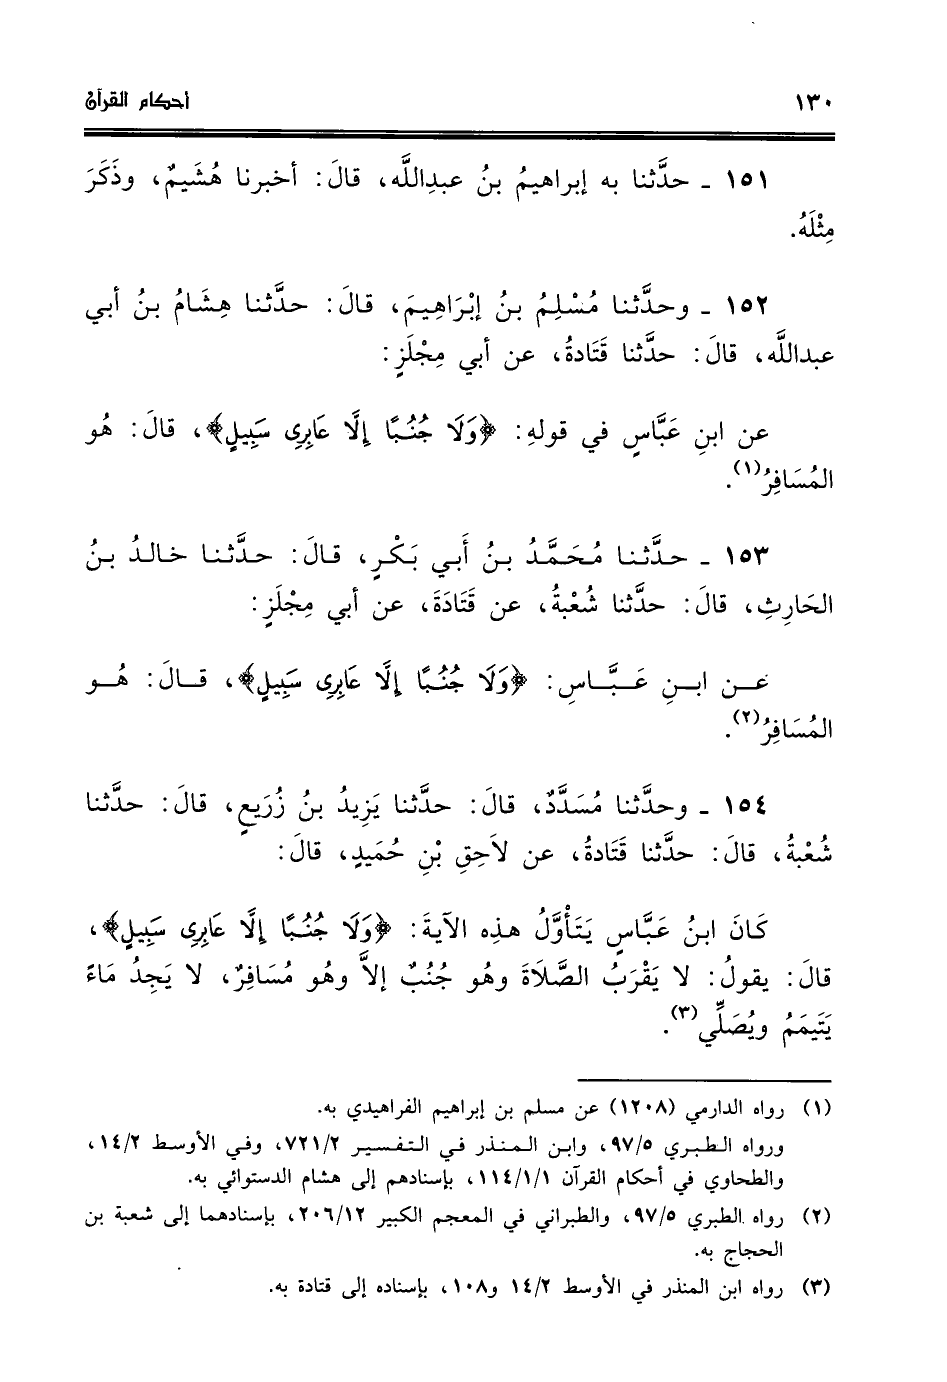 ١٣٠ أحكام القرآن
١٥١ ـ حدَّثنا به إبراهيمُ بنُ عبدِاللَّه، قالَ: أخبرنا هُشَيمٌ، وذَكَرَ
مِثْلَهُ.
١٥٢ ـ وحدَّثنا مُسْلِمُ بنُ إبْرَاهِيمَ، قالَ: حدَّثنا هِشَامُ بنُ أبي
عبداللَّه، قالَ: حدَّثنا قَتَادةُ، عن أبي مِجْلَزٍ:
عن ابنِ عَبَّاسٍ في قولهِ: ﴿وَلَا جُنُبًا إِلَّا عَابِرِى سَبِيلٍ﴾، قالَ: هُو
المُسَافِرُ(١).
١٥٣ ـ حدَّثنا مُحَمَّدُ بنُ أَبي بَكْرٍ، قالَ: حدَّثنا خالدُ بنُ
الحَارِثِ، قالَ: حدَّثنا شُعْبةُ، عن قَتَادَةَ، عن أبي مِجْلَزٍ:
عن ابنِ عَبَّاسٍ: ﴿وَلَا جُنُبًا إِلَّا عَابِرِى سَبِيلٍ﴾، قالَ: هُو
المُسَافِرُ(٢).
١٥٤ ـ وحدَّثنا مُسَدَّدٌ، قالَ: حدَّثنا يَزِيدُ بنُ زُرَيعٍ، قالَ: حدَّثنا
شُعْبةُ، قالَ: حدَّثنا قَتَادةُ، عن لاَحِقِ بْنِ حُمَيدٍ، قالَ:
كَانَ ابنُ عَبَّاسٍ يَتَأْوَّلُ هذِه الآيةَ: ﴿وَلَا جُنُبًا إِلَّا عَابِرِى سَبِيلٍ﴾،
قالَ: يقولُ: لا يَقْرَبُ الصَّلَاةَ وهُو جُنُبٌ إلاَّ وهُو مُسَافِرٌ، لا يَجِدُ مَاءً
يَتَيمَمُ ويُصَلِّي(٣).
(١) رواه الدارمي (١٢٠٨) عن مسلم بن إبراهيم الفراهيدي به.
ورواه الطبري ٩٧/٥، وابن المنذر في التفسير ٧٢١/٢، وفي الأوسط ١٤/٢،
والطحاوي في أحكام القرآن ١١٤/١/١، بإسنادهم إلى هشام الدستوائي به.
(٢) رواه الطبري ٩٧/٥، والطبراني في المعجم الكبير ٢٠٦/١٢، بإسنادهما إلى شعبة بن
الحجاج به.
(٣) رواه ابن المنذر في الأوسط ١٤/٢ و١٠٨، بإسناده إلى قتادة به.